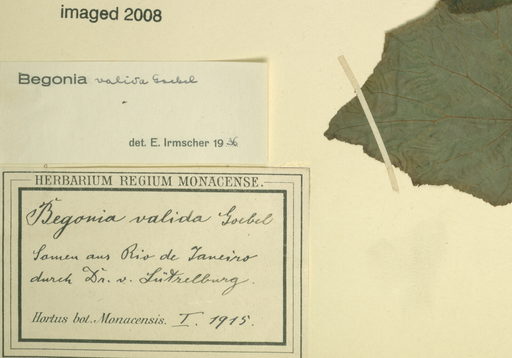 imaged 2008
Begonia valida Goebel
det. E. Irmscher 1936
HERBARIUM REGIUM MONACENSE.
Begonia valida Goebel
Samen aus Rio de Janeiro
durch Dr. v. Lützelburg.
Hortus bot. Monacensis. I. 1915.